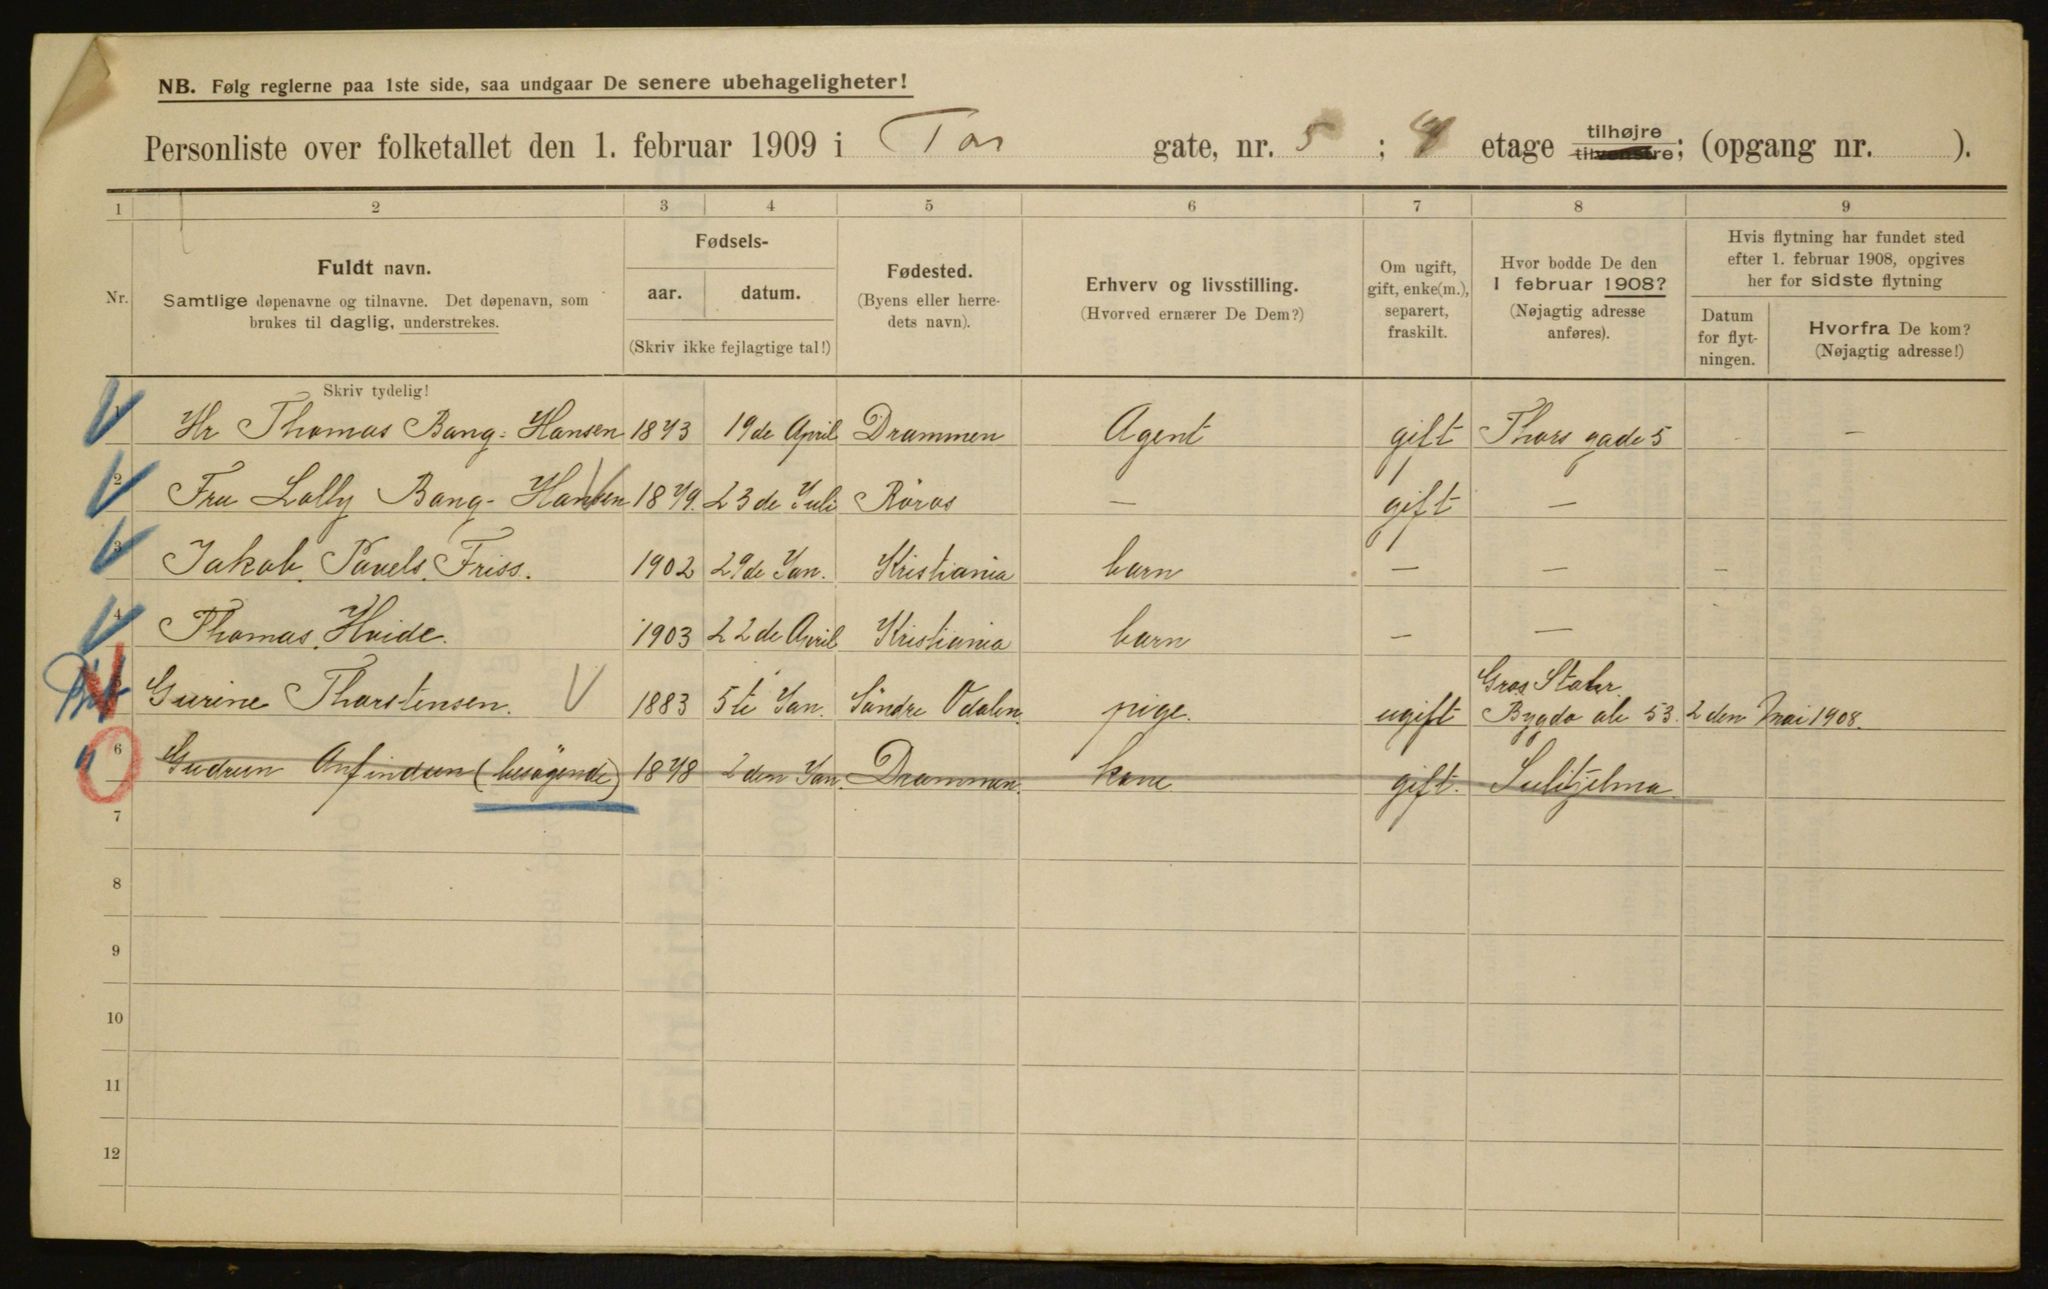 NB. Følg reglerne paa 1ste side, saa undgaar De senere ubehageligheter!
Personliste over folketallet den 1. februar 1909 i Tor gate, nr. 5; 4 etage tilhøjre tilvenstre; (opgang nr. ).
1 2 3 4 5 6 7 8 9
Nr.
Fuldt navn.
Samtlige døpenavne og tilnavne. Det døpenavn, som
brukes til daglig, understrekes.
Fødsels-
aar. datum.
(Skriv ikke fejlagtige tal!)
Fødested.
(Byens eller herre-
dets navn).
Erhverv og livsstilling.
(Hvorved ernærer De Dem?)
Om ugift,
gift, enke(m.),
separert,
fraskilt.
Hvor bodde De den
1 februar 1908?
(Nøjagtig adresse
anføres).
Hvis flytning har fundet sted
efter 1. februar 1908, opgives
her for sidste flytning
Datum
for flyt-
ningen.
Hvorfra De kom?
(Nøjagtig adresse!)
Skriv tydelig!
1 Hr Thomas Bang-Hansen 1873 19de April Drammen Agent gift Thors gade 5 –
2 Fru Lolly Bang-Hansen 1879. 23de Juli Röros – gift –
3 Jakob. Pavels. Friss. 1902 29de Jan. Kristiania barn – – –
4 Thomas. Hvide. 1903 22de April Kristiania barn – –
5 Gurine Thorstensen. 1883 5te Jan. Söndre Odalen. pige. ugift Bygdø ale 53. 2 den Mai 1908.
6 Gudrun (besögende) 1878 2den Jan. Drammen. kone gift. Sulitjelma.
7
8
9
10
11
12